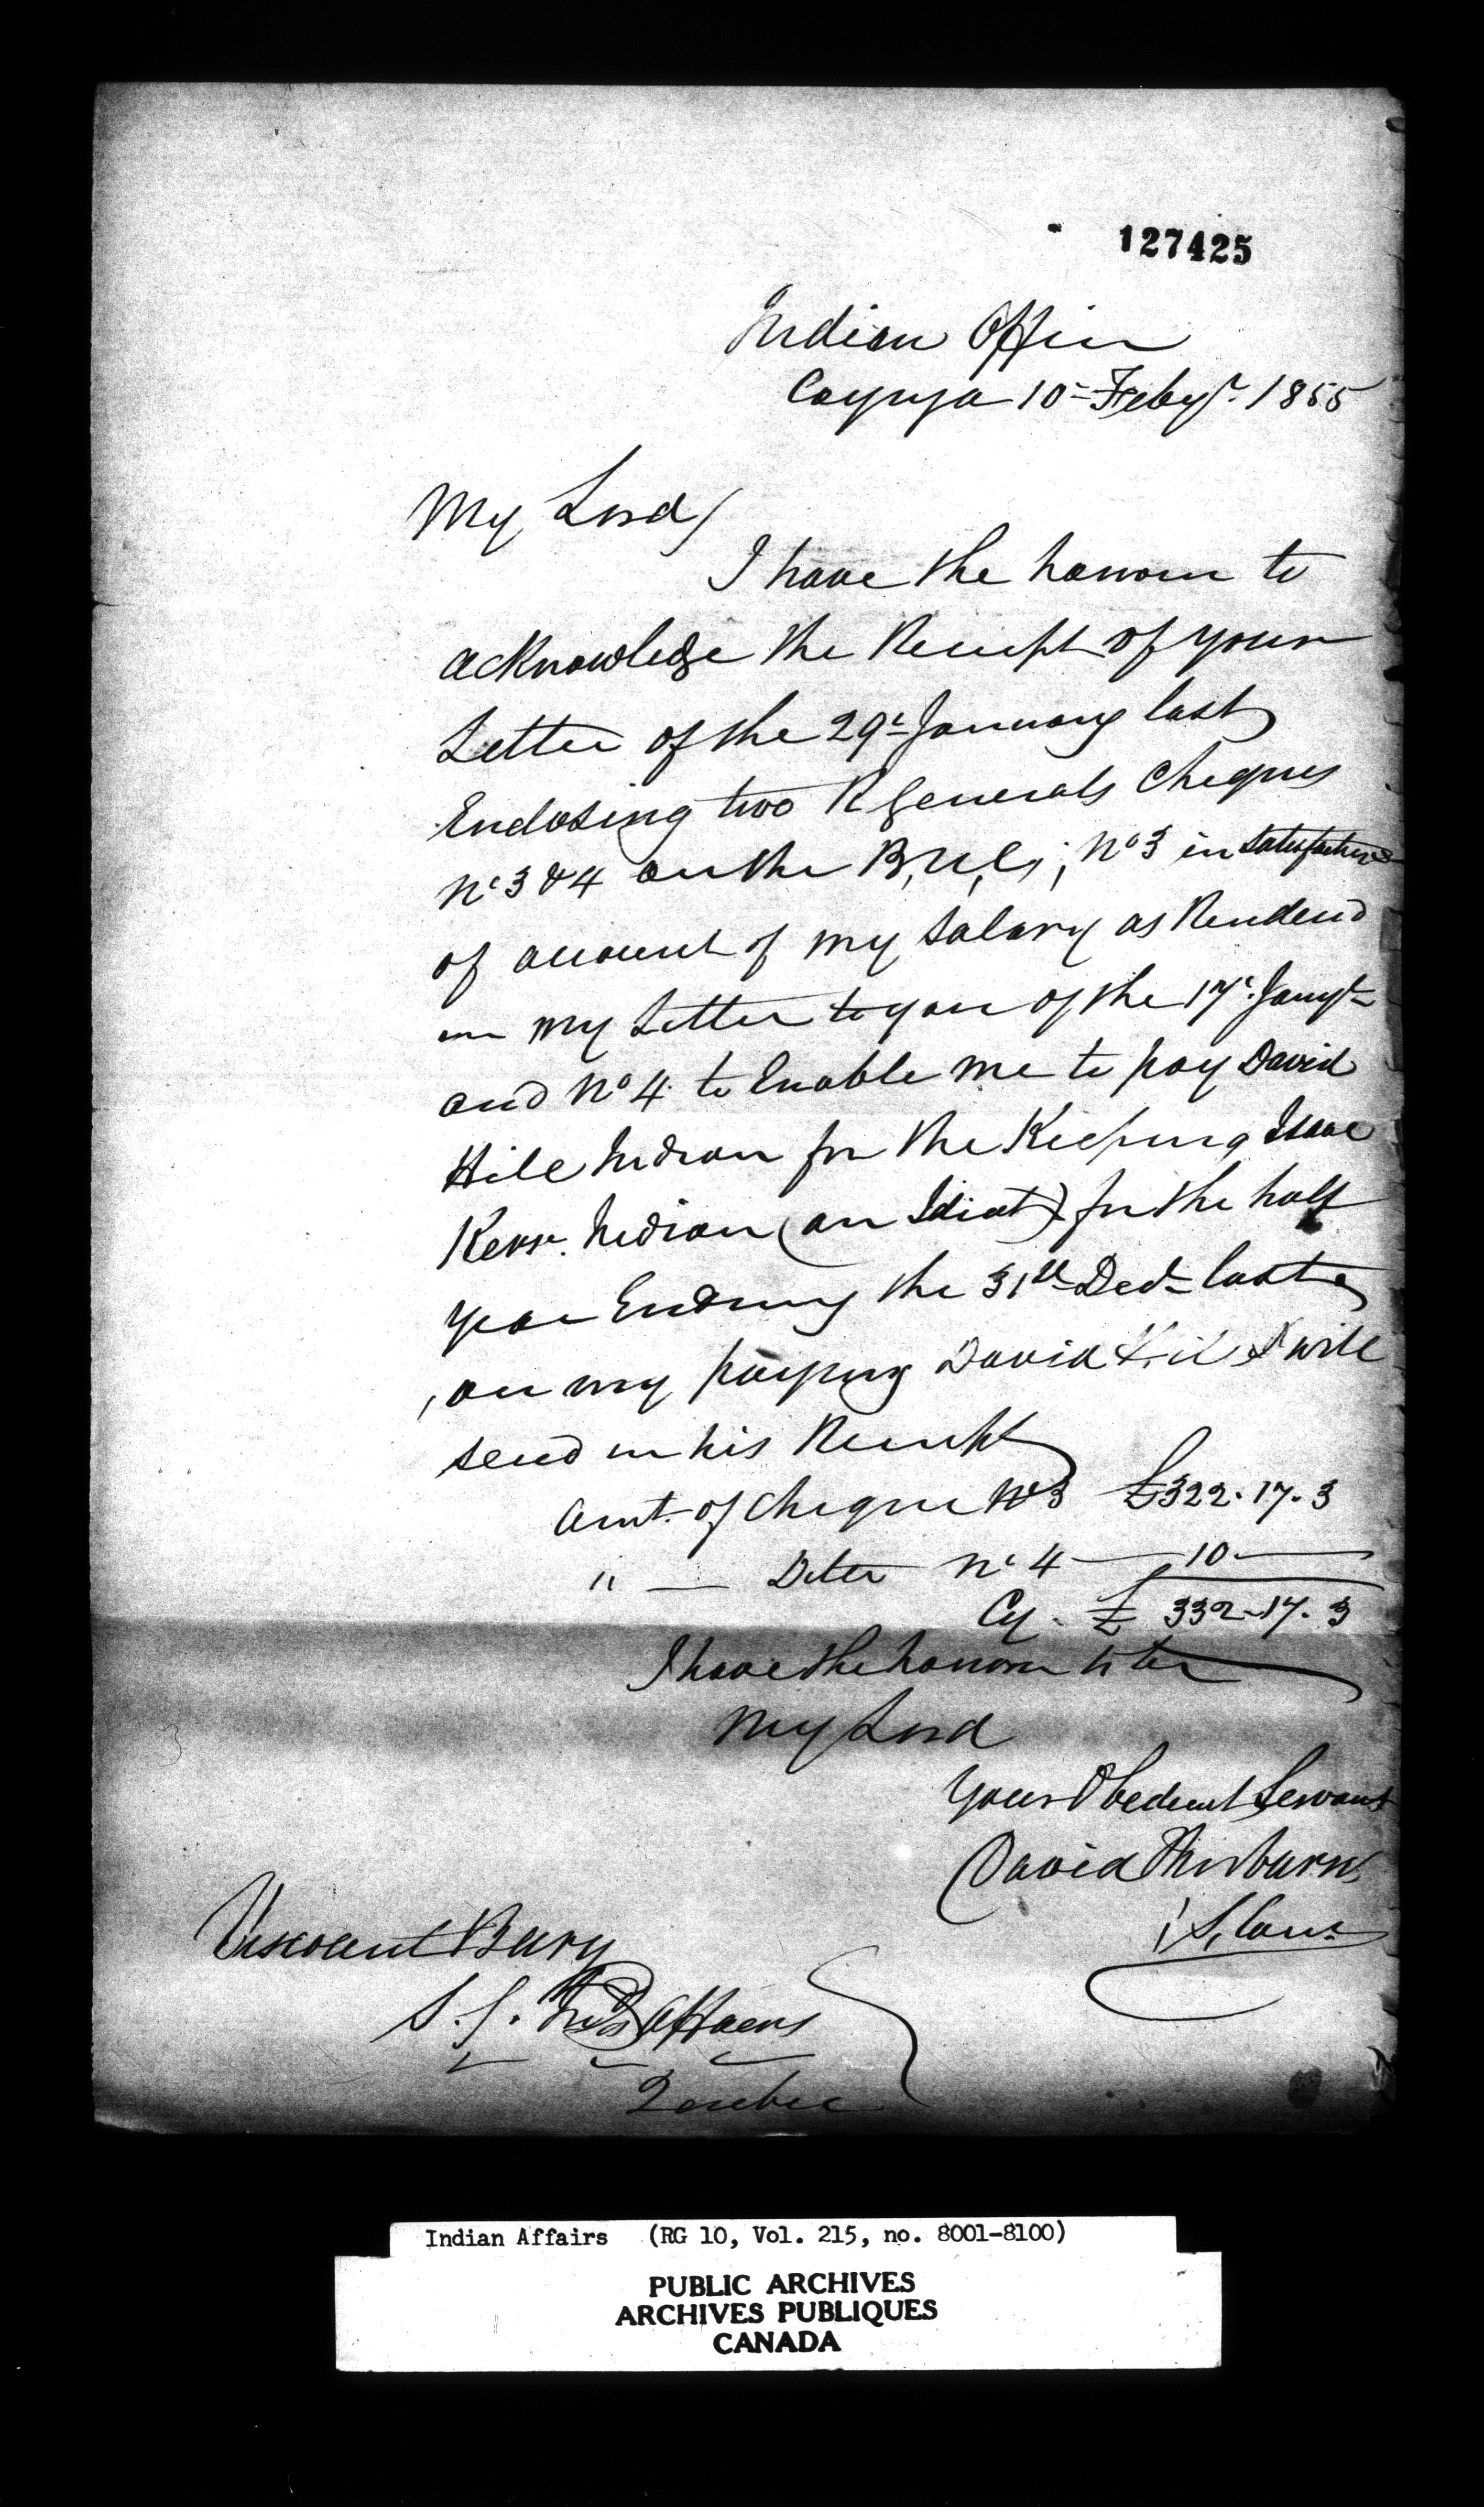 127425
Indian Office
Cayuga 10 Feby 1855
My Lord/
I have the honour to
acknowledge the Receipt of your
Letter of the 29 January last
Enclosing two R Generals Cheques
No 3 & 4 on the B, U, C; No 3 in satisfaction
of account of my Salary as Rendered
in my Letter to you of the 17 Jany
and No 4 to Enable me to pay David
Hill Indian for the Keeping Isaac
Kerr. Indian (an Idiot) for the half
year Ending the 31st Decr last,
on my paying David Hill I will
send in his Receipt
Amt. of Cheque No 3 £322.17.3
" — Ditto No 4 — 10 —
Cy. £ 332.17.3
I have the honour to be
My Lord
Your Obedient Servant
David Thorburn
Viscount Bury
S. G. Ind Affairs
Quebec
Indian Affairs (RG 10, Vol. 215, no. 8001-8100)
PUBLIC ARCHIVES
ARCHIVES PUBLIQUES
CANADA